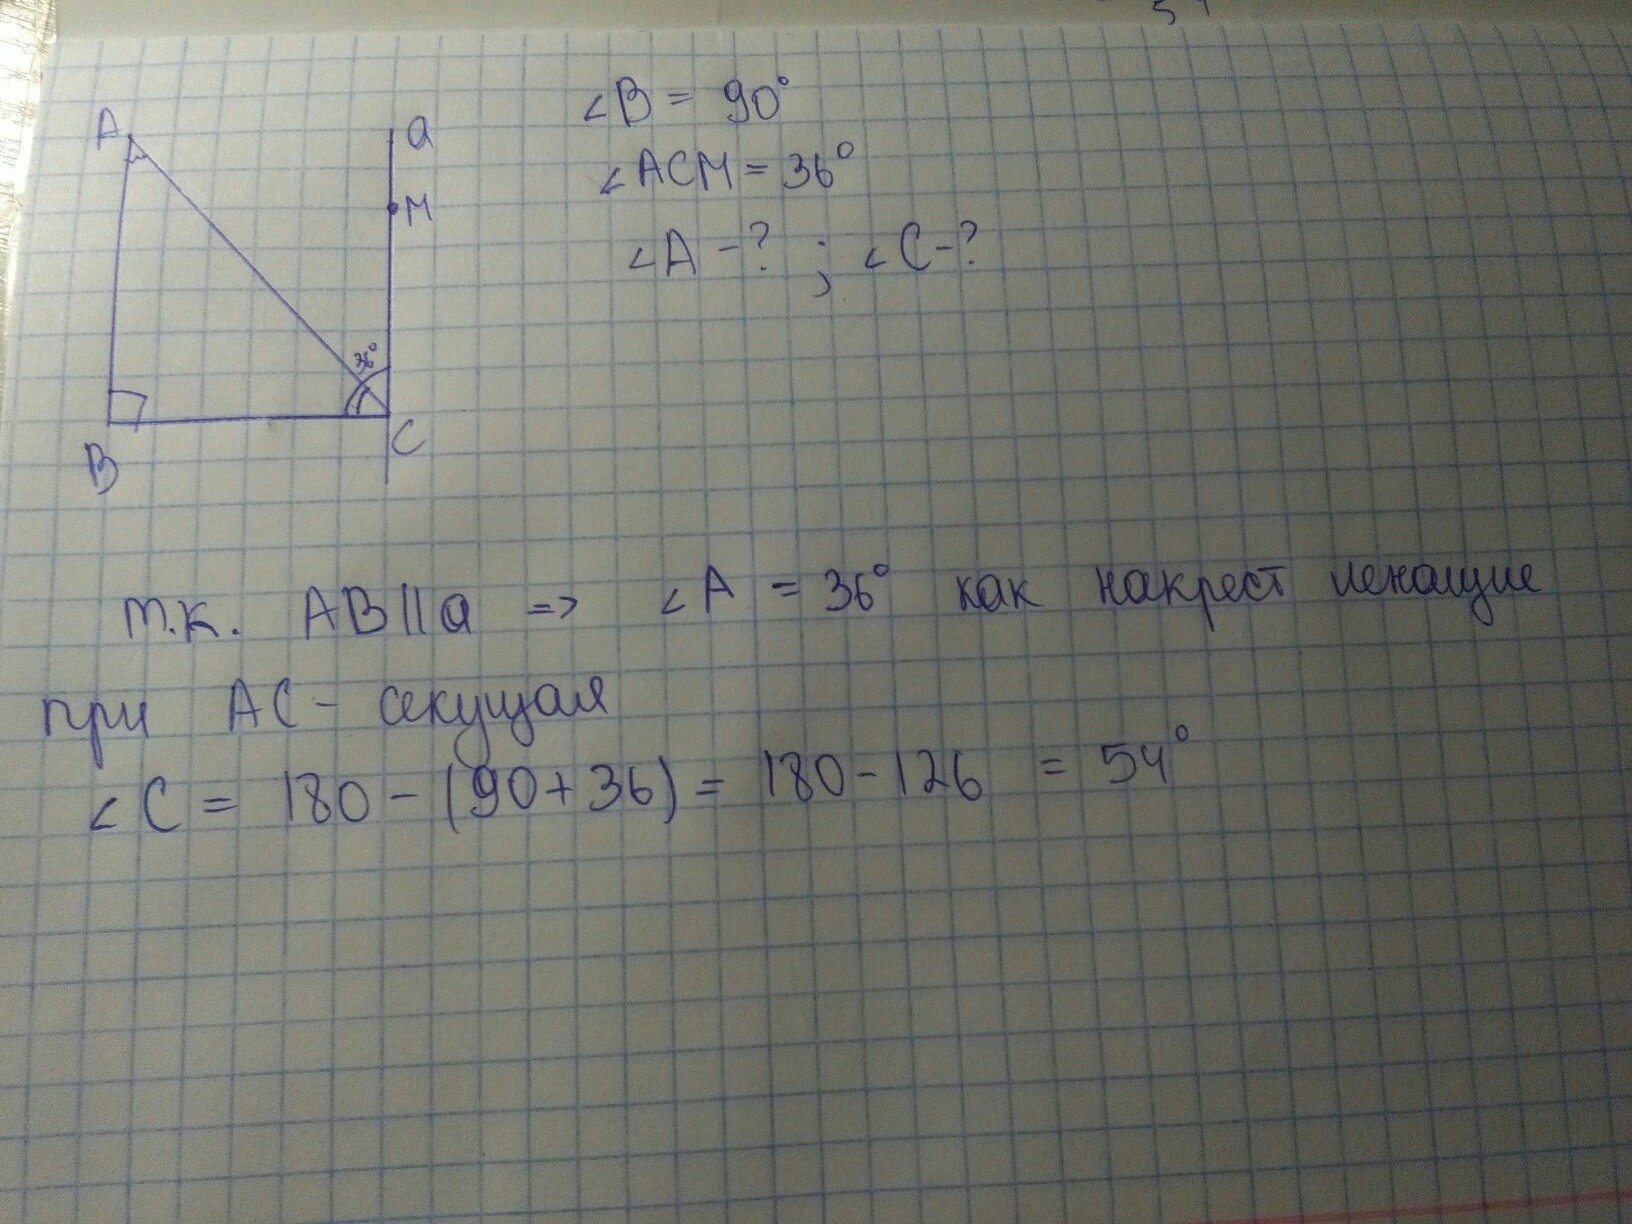 ∠B = 90°
A
a
∠ACM = 36°
M
∠A - ? ; ∠C - ?
36°
B
C
т.к. AB || a => ∠A = 36° как накрест лежащие
при AC - секущая
∠C = 180 - (90 + 36) = 180 - 126 = 54°